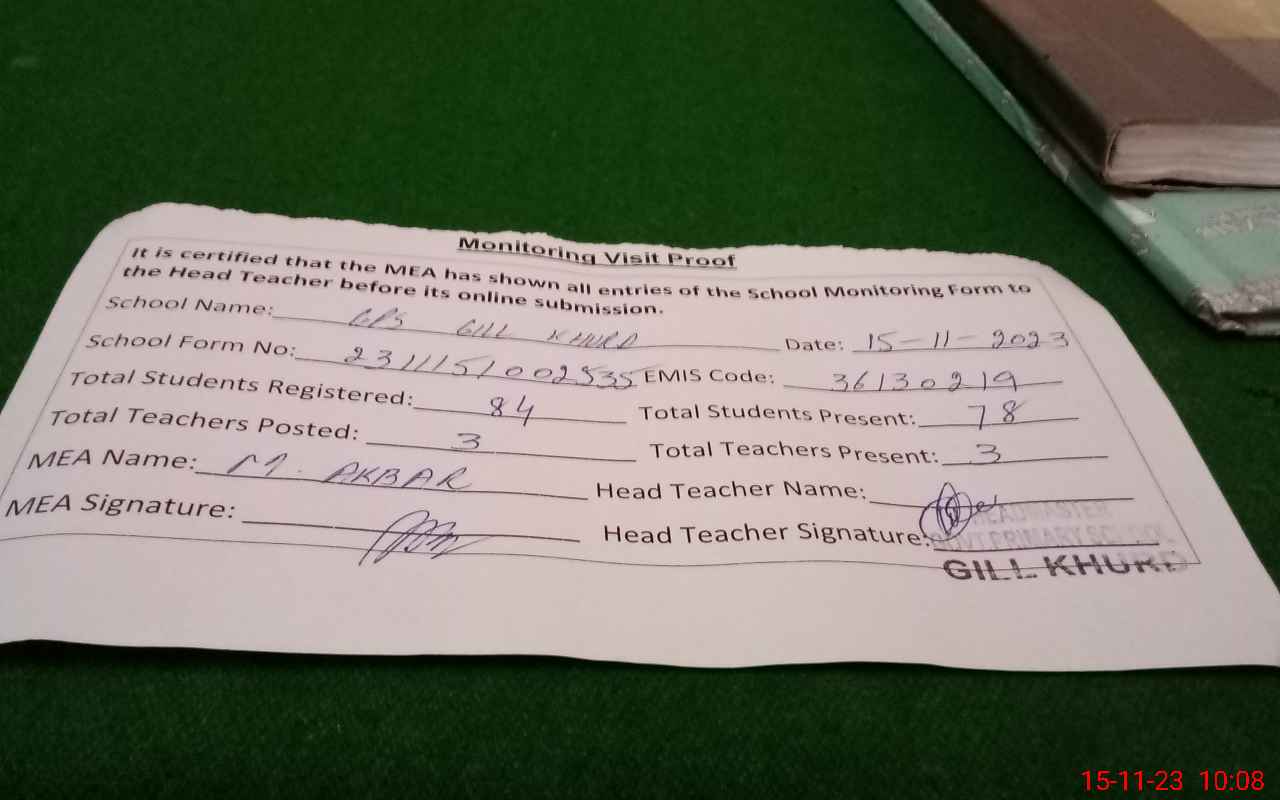 Monitoring Visit Proof
It is certified that the MEA has shown all entries of the School Monitoring Form to
the Head Teacher before its online submission.
School Name: GPS GILL KHURD Date: 15-11-2023
School Form No: 2311151002535 EMIS Code: 36130219
Total Students Registered: 84 Total Students Present: 78
Total Teachers Posted: 3 Total Teachers Present: 3
MEA Name: M. AKBAR Head Teacher Name:
MEA Signature: Head Teacher Signature:
HEADMASTER
GOVT.PRIMARY SCHOOL
GILL KHURD
15-11-23 10:08